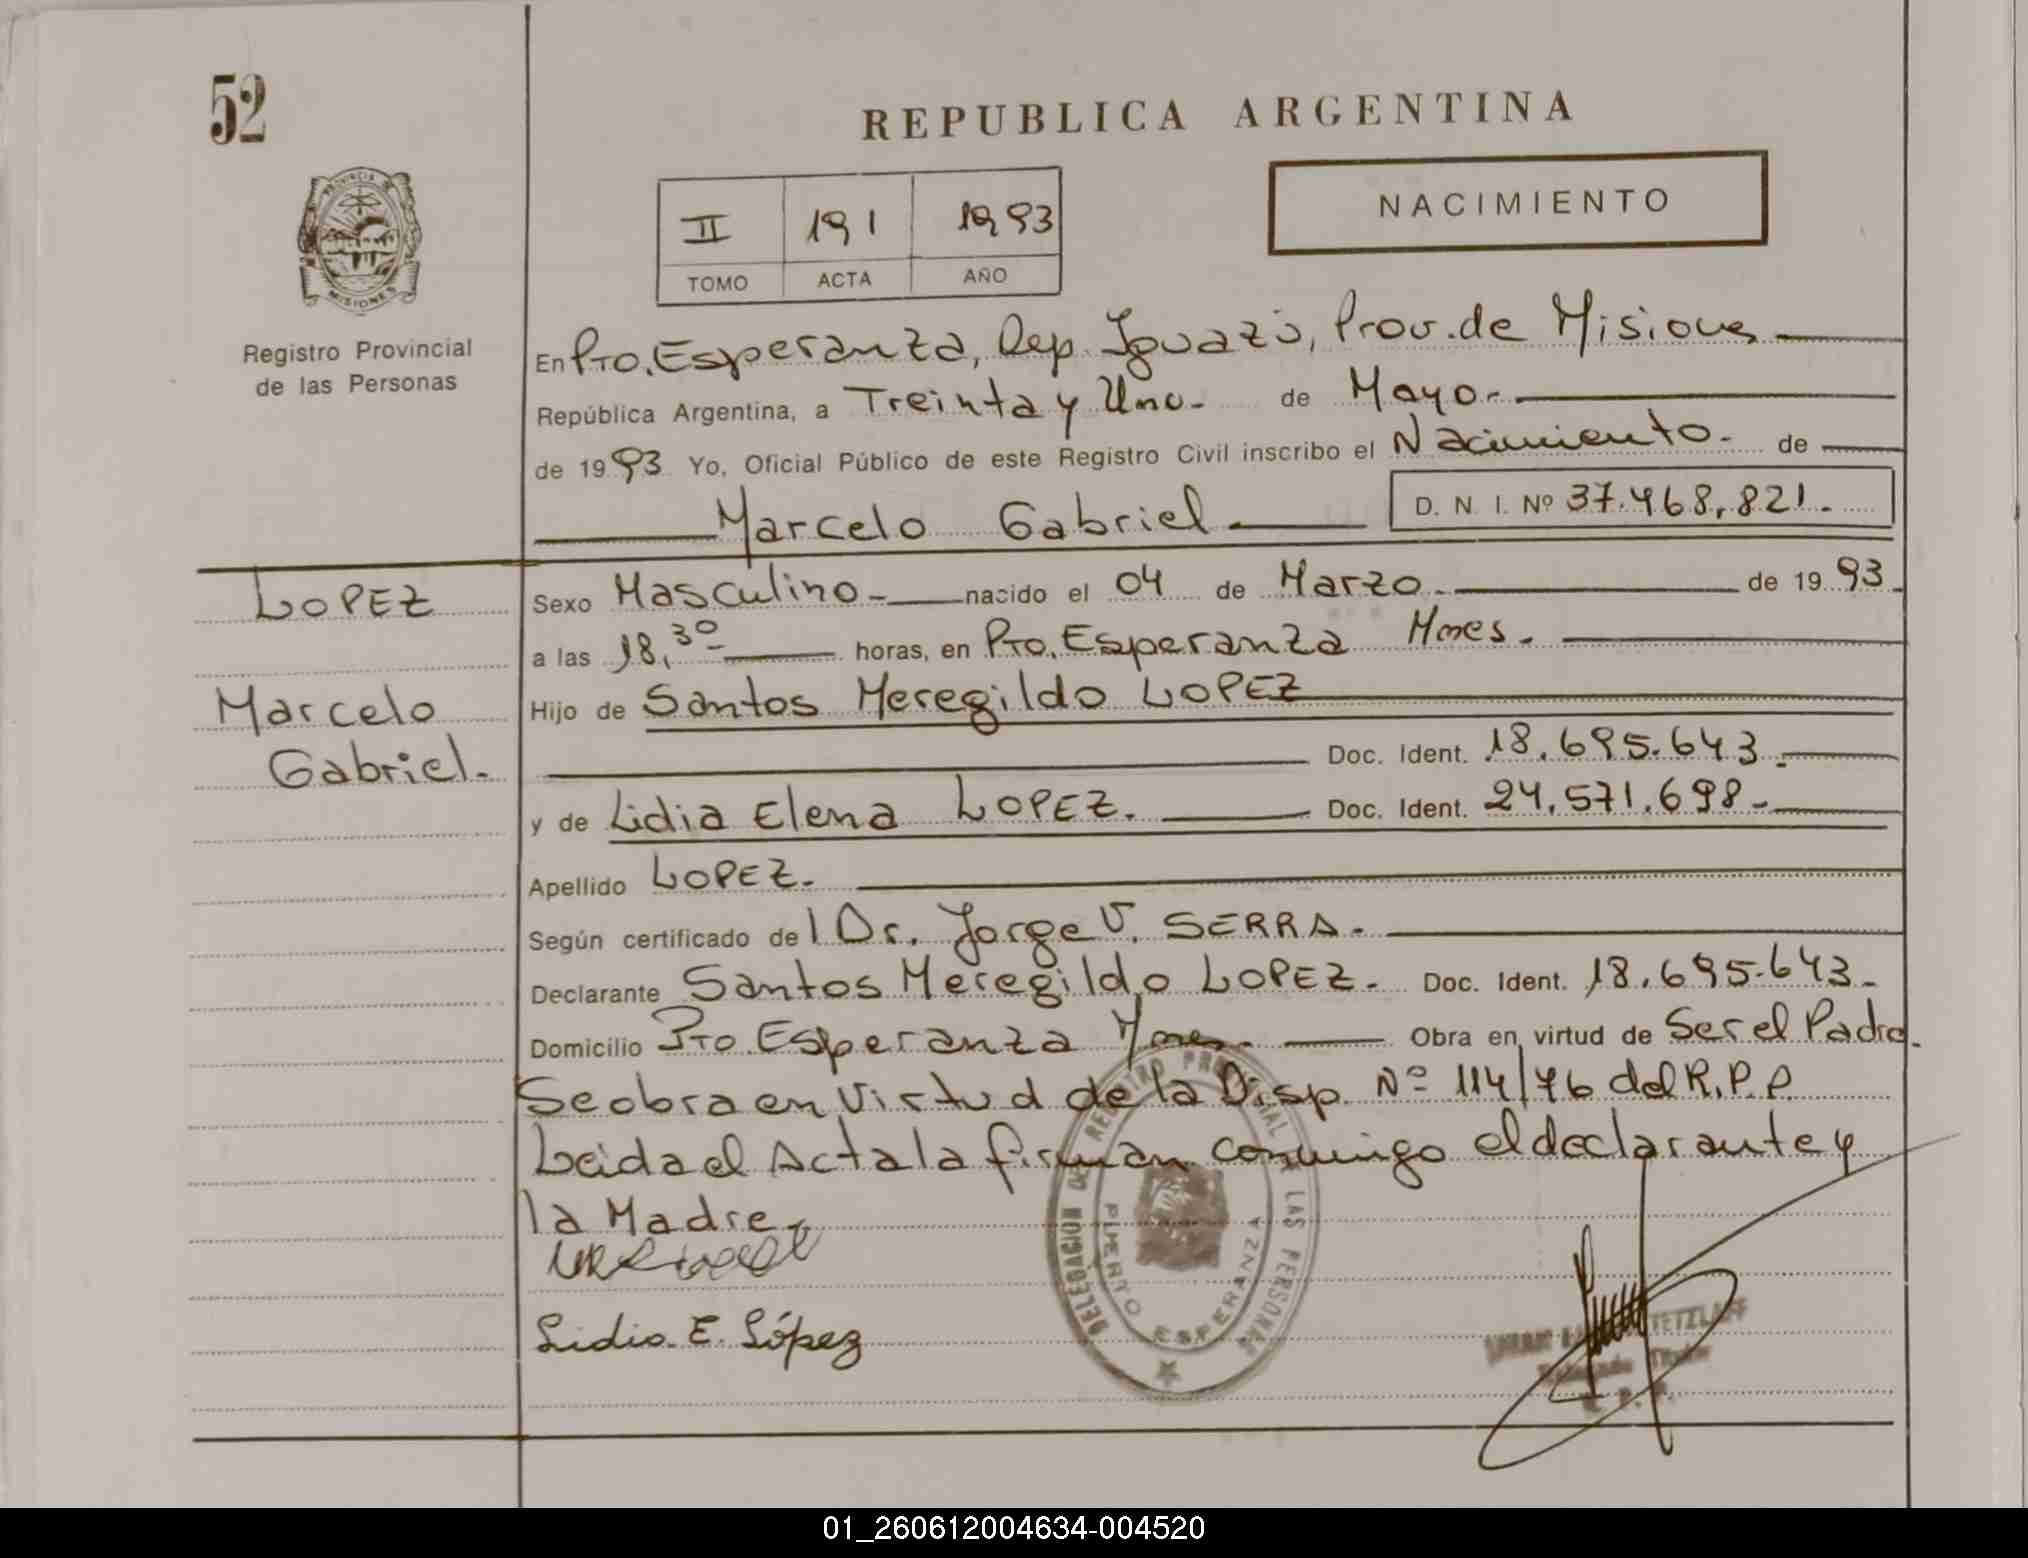 52
REPUBLICA ARGENTINA
PROVINCIA DE
MISIONES
Registro Provincial
de las Personas
II 191 1993
TOMO ACTA AÑO
NACIMIENTO
En Pto. Esperanza, Dep. Iguazú, Prov. de Misiones
República Argentina, a Treinta y Uno.- de Mayo.-
de 1993 Yo, Oficial Público de este Registro Civil inscribo el Nacimiento.- de
Marcelo Gabriel D. N. I. Nº 37.468.821.-
LOPEZ
Marcelo
Gabriel.-
Sexo Masculino.- nacido el 04 de Marzo.- de 1993.-
a las 18,30- horas, en Pto. Esperanza Mnes.-
Hijo de Santos Meregildo LOPEZ
Doc. Ident. 18.695.643.-
y de Lidia Elena LOPEZ.- Doc. Ident. 24.571.698.-
Apellido LOPEZ.-
Según certificado del Dr. Jorge V. SERRA.-
Declarante Santos Meregildo LOPEZ.- Doc. Ident. 18.695.643.-
Domicilio Pto Esperanza Mnes.- Obra en virtud de Ser el Padre.
Se obra en Virtud de la Disp. Nº 114/76 del R.P.P.
Leida el Acta la firman conmigo el declarante y
la Madre.-
Lidia E. López
DELEGACION DEL REGISTRO PROVINCIAL DE LAS PERSONAS
PUERTO ESPERANZA
TETZLAFF
Titular
01_260612004634-004520